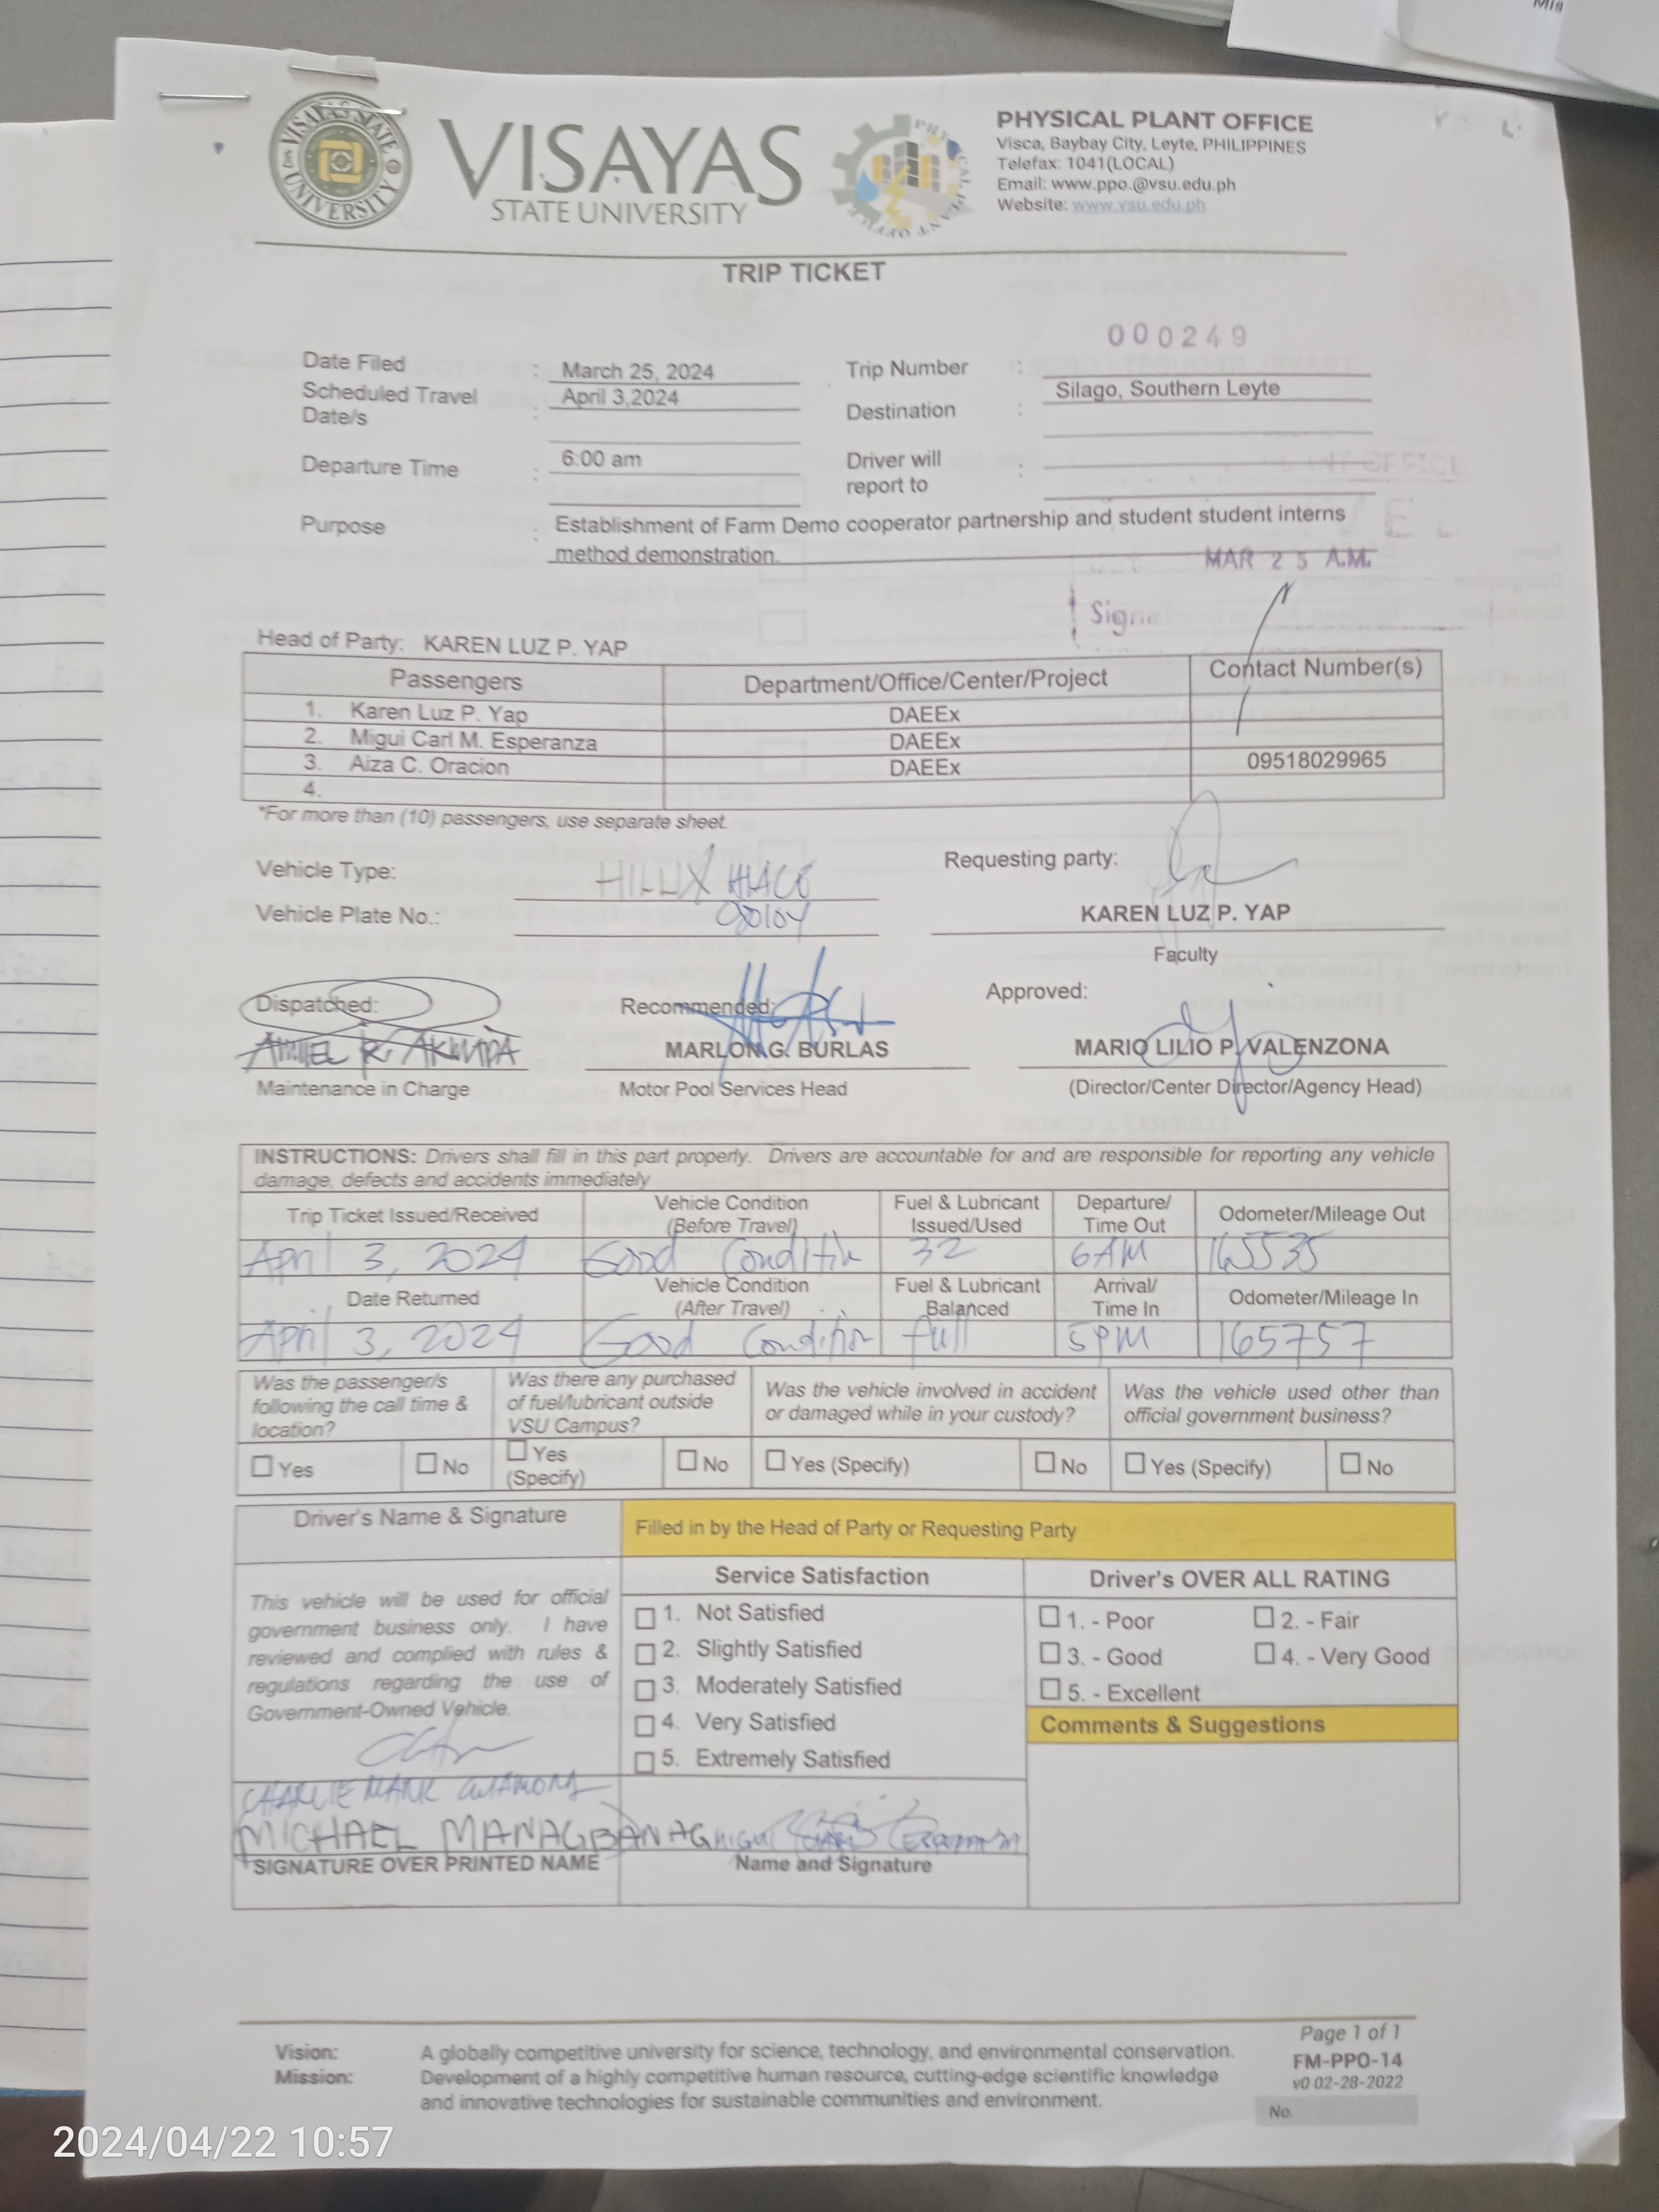 VISAYAS STATE UNIVERSITY
VISAYAS
STATE UNIVERSITY
PHYSICAL PLANT OFFICE
Visca, Baybay City, Leyte, PHILIPPINES
Telefax: 1041(LOCAL)
Email: www.ppo.@vsu.edu.ph
Website: www.vsu.edu.ph
TRIP TICKET
000249
Date Filed : March 25, 2024 Trip Number :
Scheduled Travel Date/s : April 3,2024 Destination : Silago, Southern Leyte
Departure Time : 6:00 am Driver will report to :
Purpose : Establishment of Farm Demo cooperator partnership and student student interns
method demonstration.
MAR 25 A.M.
Head of Party: KAREN LUZ P. YAP
Passengers Department/Office/Center/Project Contact Number(s)
1. Karen Luz P. Yap DAEEx
2. Migui Carl M. Esperanza DAEEx
3. Aiza C. Oracion DAEEx 09518029965
4.
*For more than (10) passengers, use separate sheet.
Vehicle Type: HILUX HIACE Requesting party:
Vehicle Plate No.: KAREN LUZ P. YAP
Faculty
Dispatched: Recommended: Approved:
MARLON G. BURLAS MARIO LILIO P. VALENZONA
Maintenance in Charge Motor Pool Services Head (Director/Center Director/Agency Head)
INSTRUCTIONS: Drivers shall fill in this part properly. Drivers are accountable for and are responsible for reporting any vehicle
damage, defects and accidents immediately
Trip Ticket Issued/Received Vehicle Condition (Before Travel) Fuel & Lubricant Issued/Used Departure/ Time Out Odometer/Mileage Out
April 3, 2024 Good Condition 32 6AM 165535
Date Returned Vehicle Condition (After Travel) Fuel & Lubricant Balanced Arrival/ Time In Odometer/Mileage In
April 3, 2024 Good Condition full 5PM 165757
Was the passenger/s following the call time & location? Was there any purchased of fuel/lubricant outside VSU Campus? Was the vehicle involved in accident or damaged while in your custody? Was the vehicle used other than official government business?
Yes No Yes (Specify) No Yes (Specify) No Yes (Specify) No
Driver's Name & Signature Filled in by the Head of Party or Requesting Party
Service Satisfaction Driver's OVER ALL RATING
This vehicle will be used for official
government business only. I have
reviewed and complied with rules &
regulations regarding the use of
Government-Owned Vehicle.
1. Not Satisfied
2. Slightly Satisfied
3. Moderately Satisfied
4. Very Satisfied
5. Extremely Satisfied
1. - Poor 2. - Fair
3. - Good 4. - Very Good
5. - Excellent
Comments & Suggestions
CHARLIE MARK
MICHAEL MANAGBANAG
SIGNATURE OVER PRINTED NAME Name and Signature
Vision: A globally competitive university for science, technology, and environmental conservation.
Mission: Development of a highly competitive human resource, cutting-edge scientific knowledge
and innovative technologies for sustainable communities and environment.
Page 1 of 1
FM-PPO-14
v0 02-28-2022
No.
2024/04/22 10:57